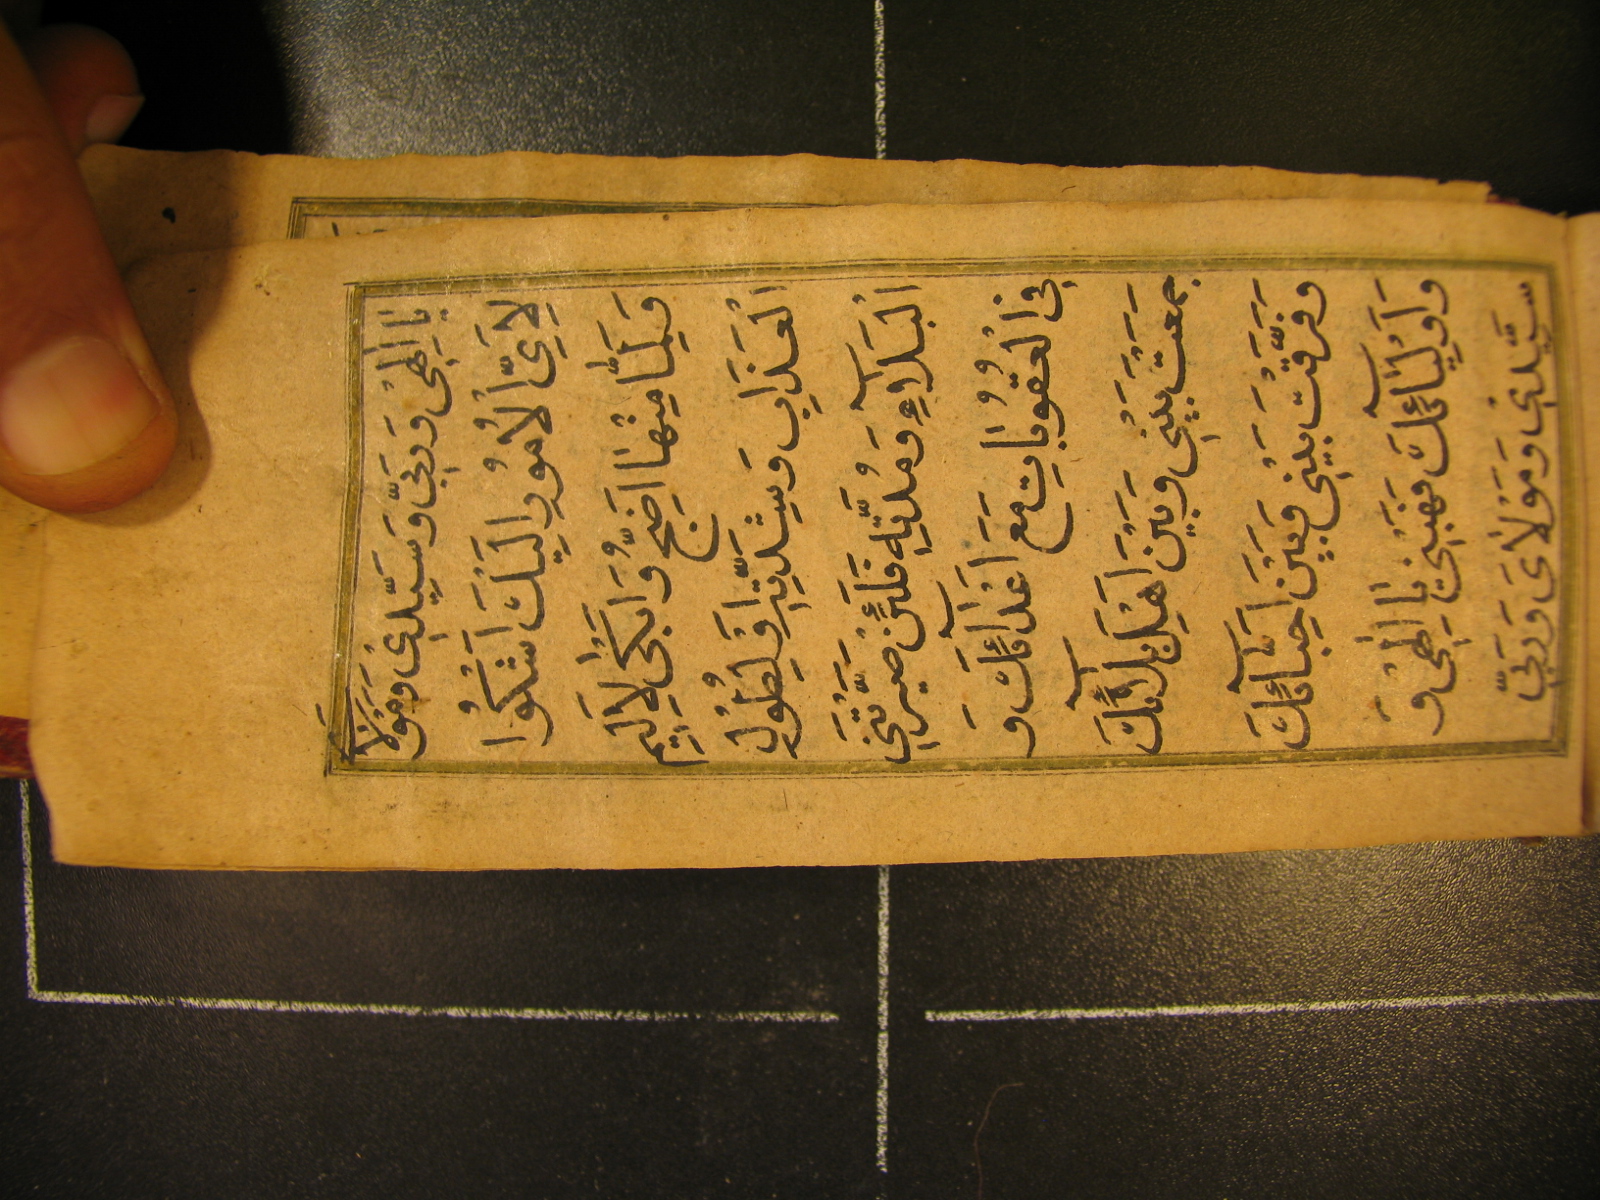 يَا اِلٰهِي وَرَبِّي وَسَيِّدِي وَمَوْلَا
لِاَيِّ الْاُمُورِ اِلَيْكَ اَشْكُوا
وَلِمَا مِنْهَا اَضِجُّ وَاَبْكِي لِاَلِيمِ
الْعَذَابِ وَشِدَّتِهِ اَوْ لِطُولِ
الْبَلَآءِ وَمُدَّتِهِ فَلَئِنْ صَيَّرْتَنِي
فِي الْعُقُوبَاتِ مَعَ اَعْدَآئِكَ وَ
جَمَعْتَ بَيْنِي وَبَيْنَ اَهْلِ بَلَآئِكَ
وَفَرَّقْتَ بَيْنِي وَبَيْنَ اَحِبَّآئِكَ
وَاَوْلِيَآئِكَ فَهَبْنِي يَا اِلٰهِي وَ
سَيِّدِي وَمَوْلَايَ وَرَبِّي